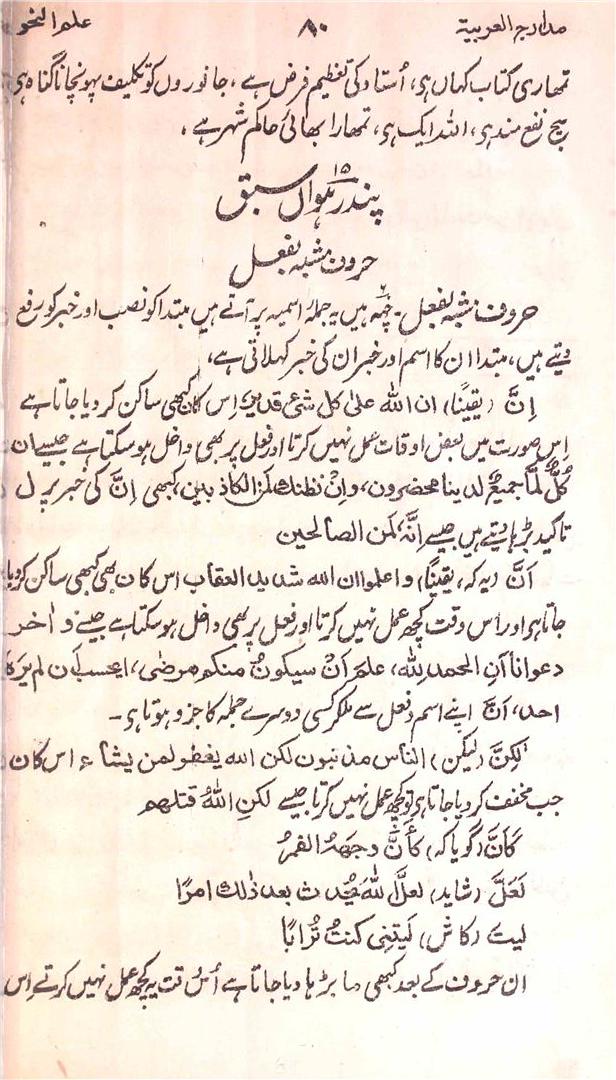 مدارج العربیۃ ۸۰ علم النحو
تمھاری کتاب کہاں ہی، اُستاد کی تعظیم فرض ہے، جانوروں کو تکلیف پہونچانا گناہ ہی
سچ نفع مند ہی، اللہ ایک ہی، تمھارا بھائی حاکم شہر ہے،
۱۵
پندرہواں سبق
حروف مشبہ بفعل
حروف مشبہ بفعل۔ چھہ ہیں یہ جملہ اسمیہ پر آتے ہیں مبتدا کو نصب اور خبر کو رفع
دیتے ہیں، مبتدا ان کا اسم اور خبر ان کی خبر کہلاتی ہے،
اِنَّ (یقینًا) ان اللہ علیٰ کل شیءٍ قدیر، اِس کا ن کبھی ساکن کر دیا جاتا ہے
اِس صورت میں بعض اوقات عمل نہیں کرتا اور فعل پر بھی داخل ہو سکتا ہے جیسے ان
کُلٌّ لَّمَّا جمیعٌ لدینا محضرون، وانْ نظنك لمن الکاذبین، کبھی اِنَّ کی خبر پر ل
تاکید بڑہا دیتے ہیں جیسے اِنَّہٗ لَمن الصالحین
اَنَّ (یہ کہ، یقیناً) واعلموا ان اللہ شدید العقاب اس کا ن بھی کبھی ساکن کر دیا
جاتا ہی اور اس وقت کچھ عمل نہیں کرتا اور فعل پر بھی داخل ہو سکتا ہے جیسے و اٰخر
دعوانا اَنِ الحمد لِلّٰہ، علم اَنْ سیکونُ منکم مرضٰی، ایحسب اَن لم یرہٗ
احد، اَنَّ اپنے اسم و فعل سے ملکر کسی دوسرے جملہ کا جزو ہوتا ہی۔
لٰکِنَّ (لیکن) الناس مذنبون لکن اللہ یغفر لمن یشاء اس کا ن
جب مخفف کر دیا جاتا ہی تو کچھ عمل نہیں کرتا جیسے لکنِ اللہُ قتلھم
کَاَنَّ (گویا کہ) کَاَنَّ وجھہُ القمرُ
لَعَلَّ (شاید) لعلَّ اللہَ یُحدث بعد ذٰلك امرًا
لیت (کاش) لَیتَنِی کنتُ تُرابًا
ان حروف کے بعد کبھی ما بڑہا دیا جاتا ہے اُس وقت یہ کچھ عمل نہیں کرتے اِس